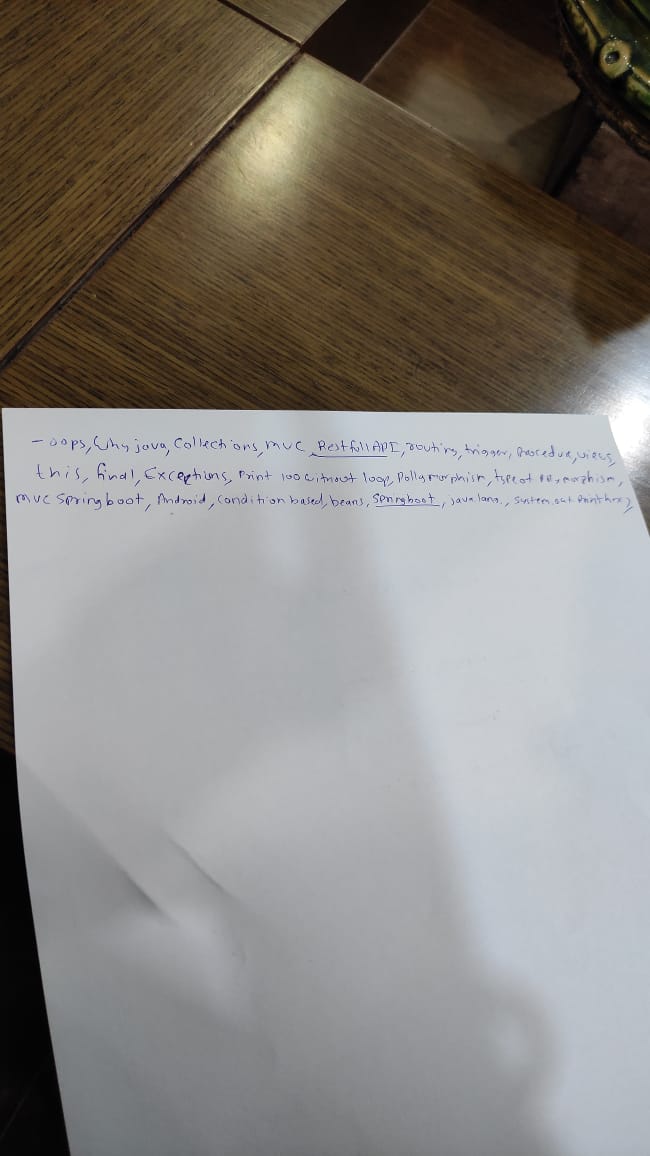 - oops, Why java, Collections, mvc, Restfull API, routing, trigger, Procedue, views,
this, final, Exceptions, Print 100 without loop, Pollymorphism, type of morphism,
mvc Spring boot, Android, condition based, beans, Springboot, java.lang., System.out